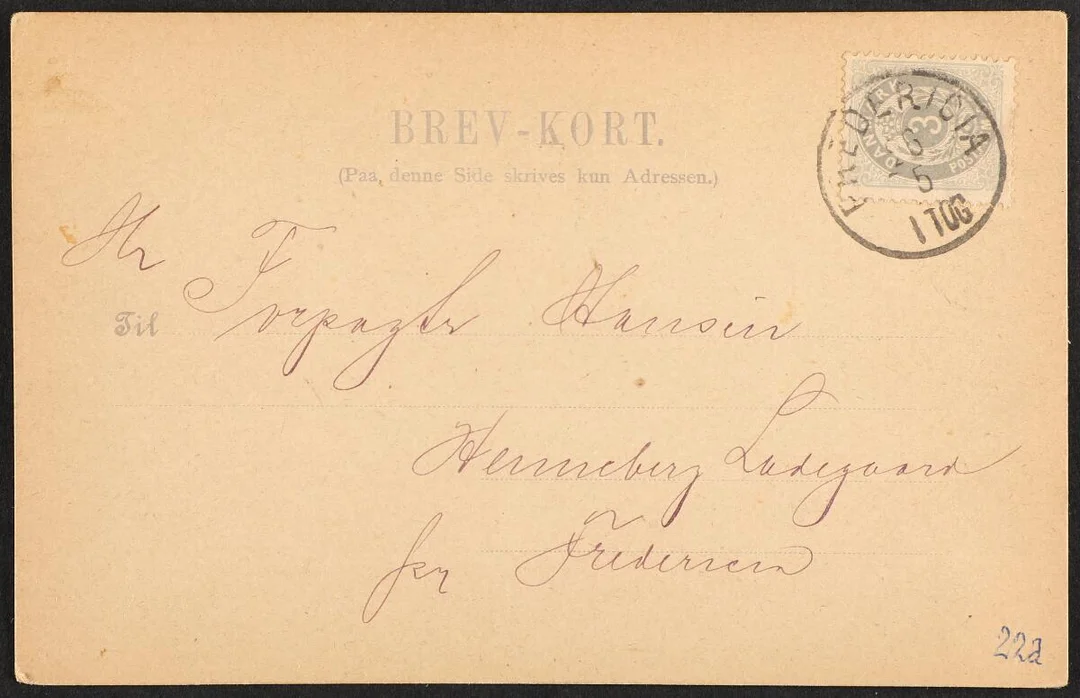 BREV-KORT.
(Paa denne Side skrives kun Adressen.)
DANMARK 3 POSTFRIM
FREDERICIA
6
5
1 TOG
Hr Forpagter Hansen
Til
Henneberg Ladegaard
pr Fredericia
22a